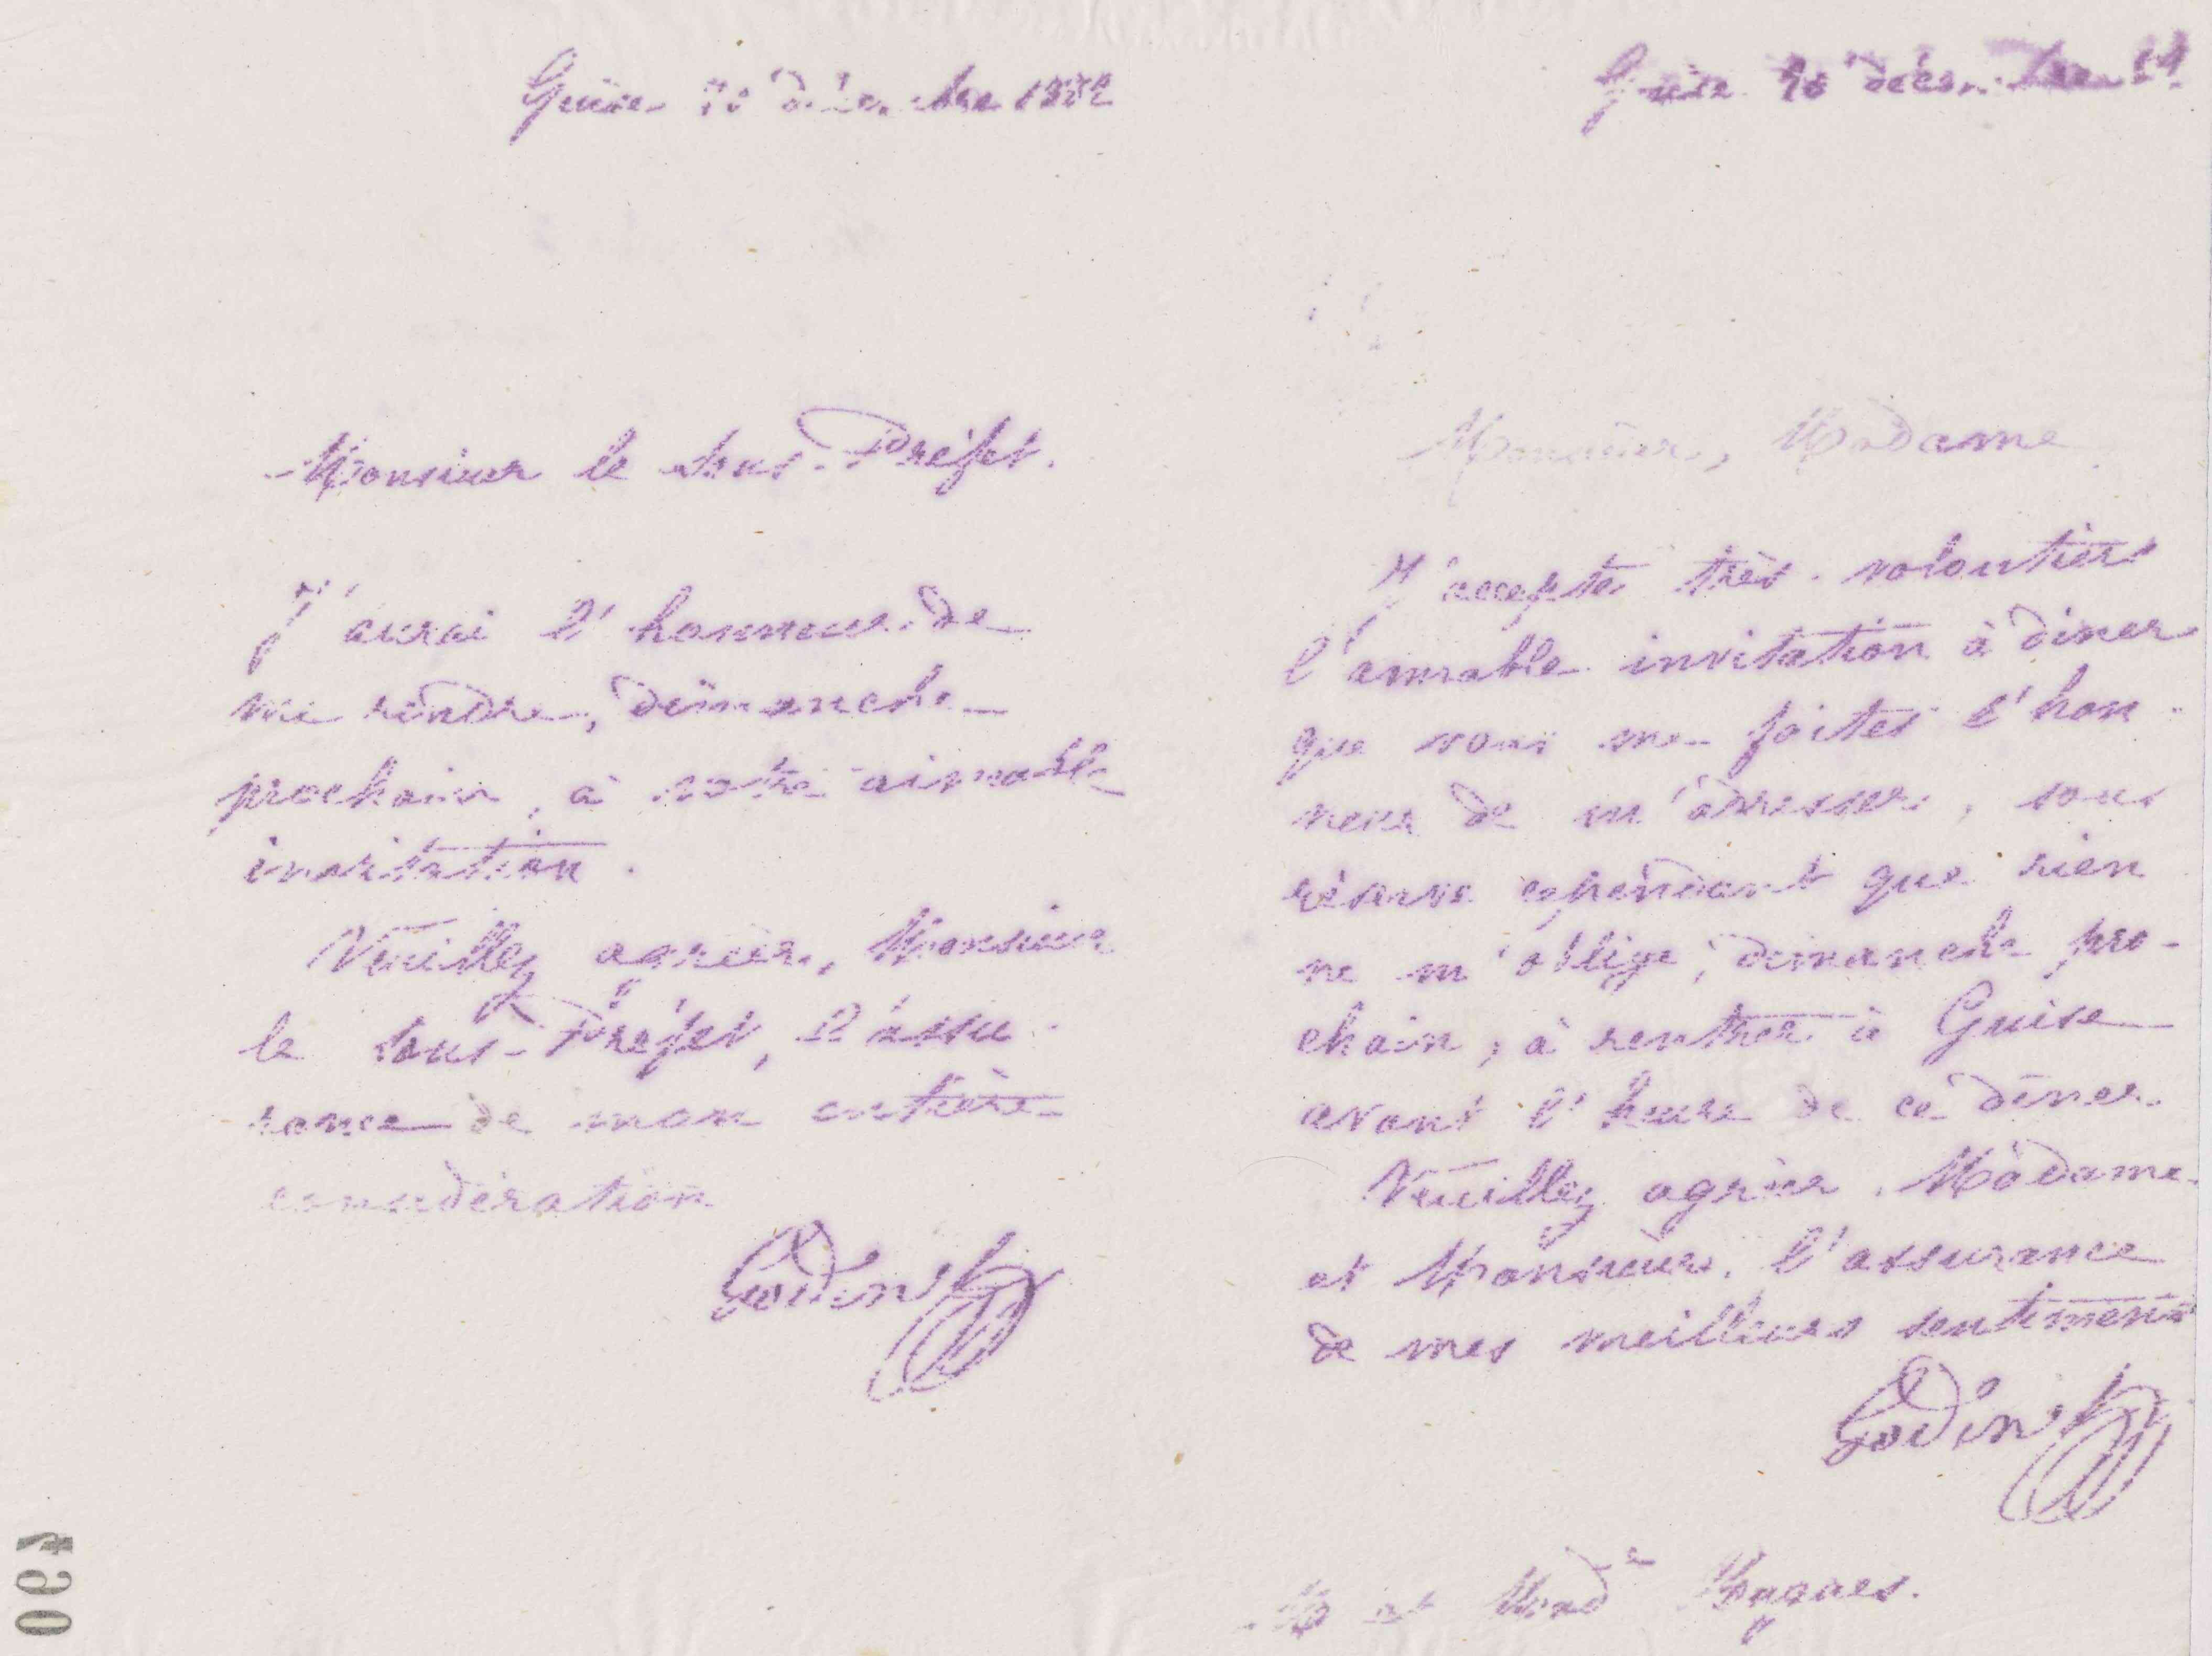 Guise décembre 1882
Monsieur le Sous-Préfet.
J'aurai l'honneur de
me rendre, dimanche
prochain, à votre aimable
invitation.
Veuillez agréer, Monsieur
le Sous-Préfet, l'assu-
rance de mon entière
considération
Godin
Guise décembre
Monsieur, Madame
J'accepte très-volontiers
l'aimable invitation à diner
que vous me faites l'hon-
neur de m'adresser, sous
réserve cependant que rien
ne m'oblige, dimanche pro-
chain, à rentrer à Guise
avant l'heure de ce dîner.
Veuillez agréer, Madame
et Monsieur, l'assurance
de mes meilleurs sentiments
Godin
M et Made
490